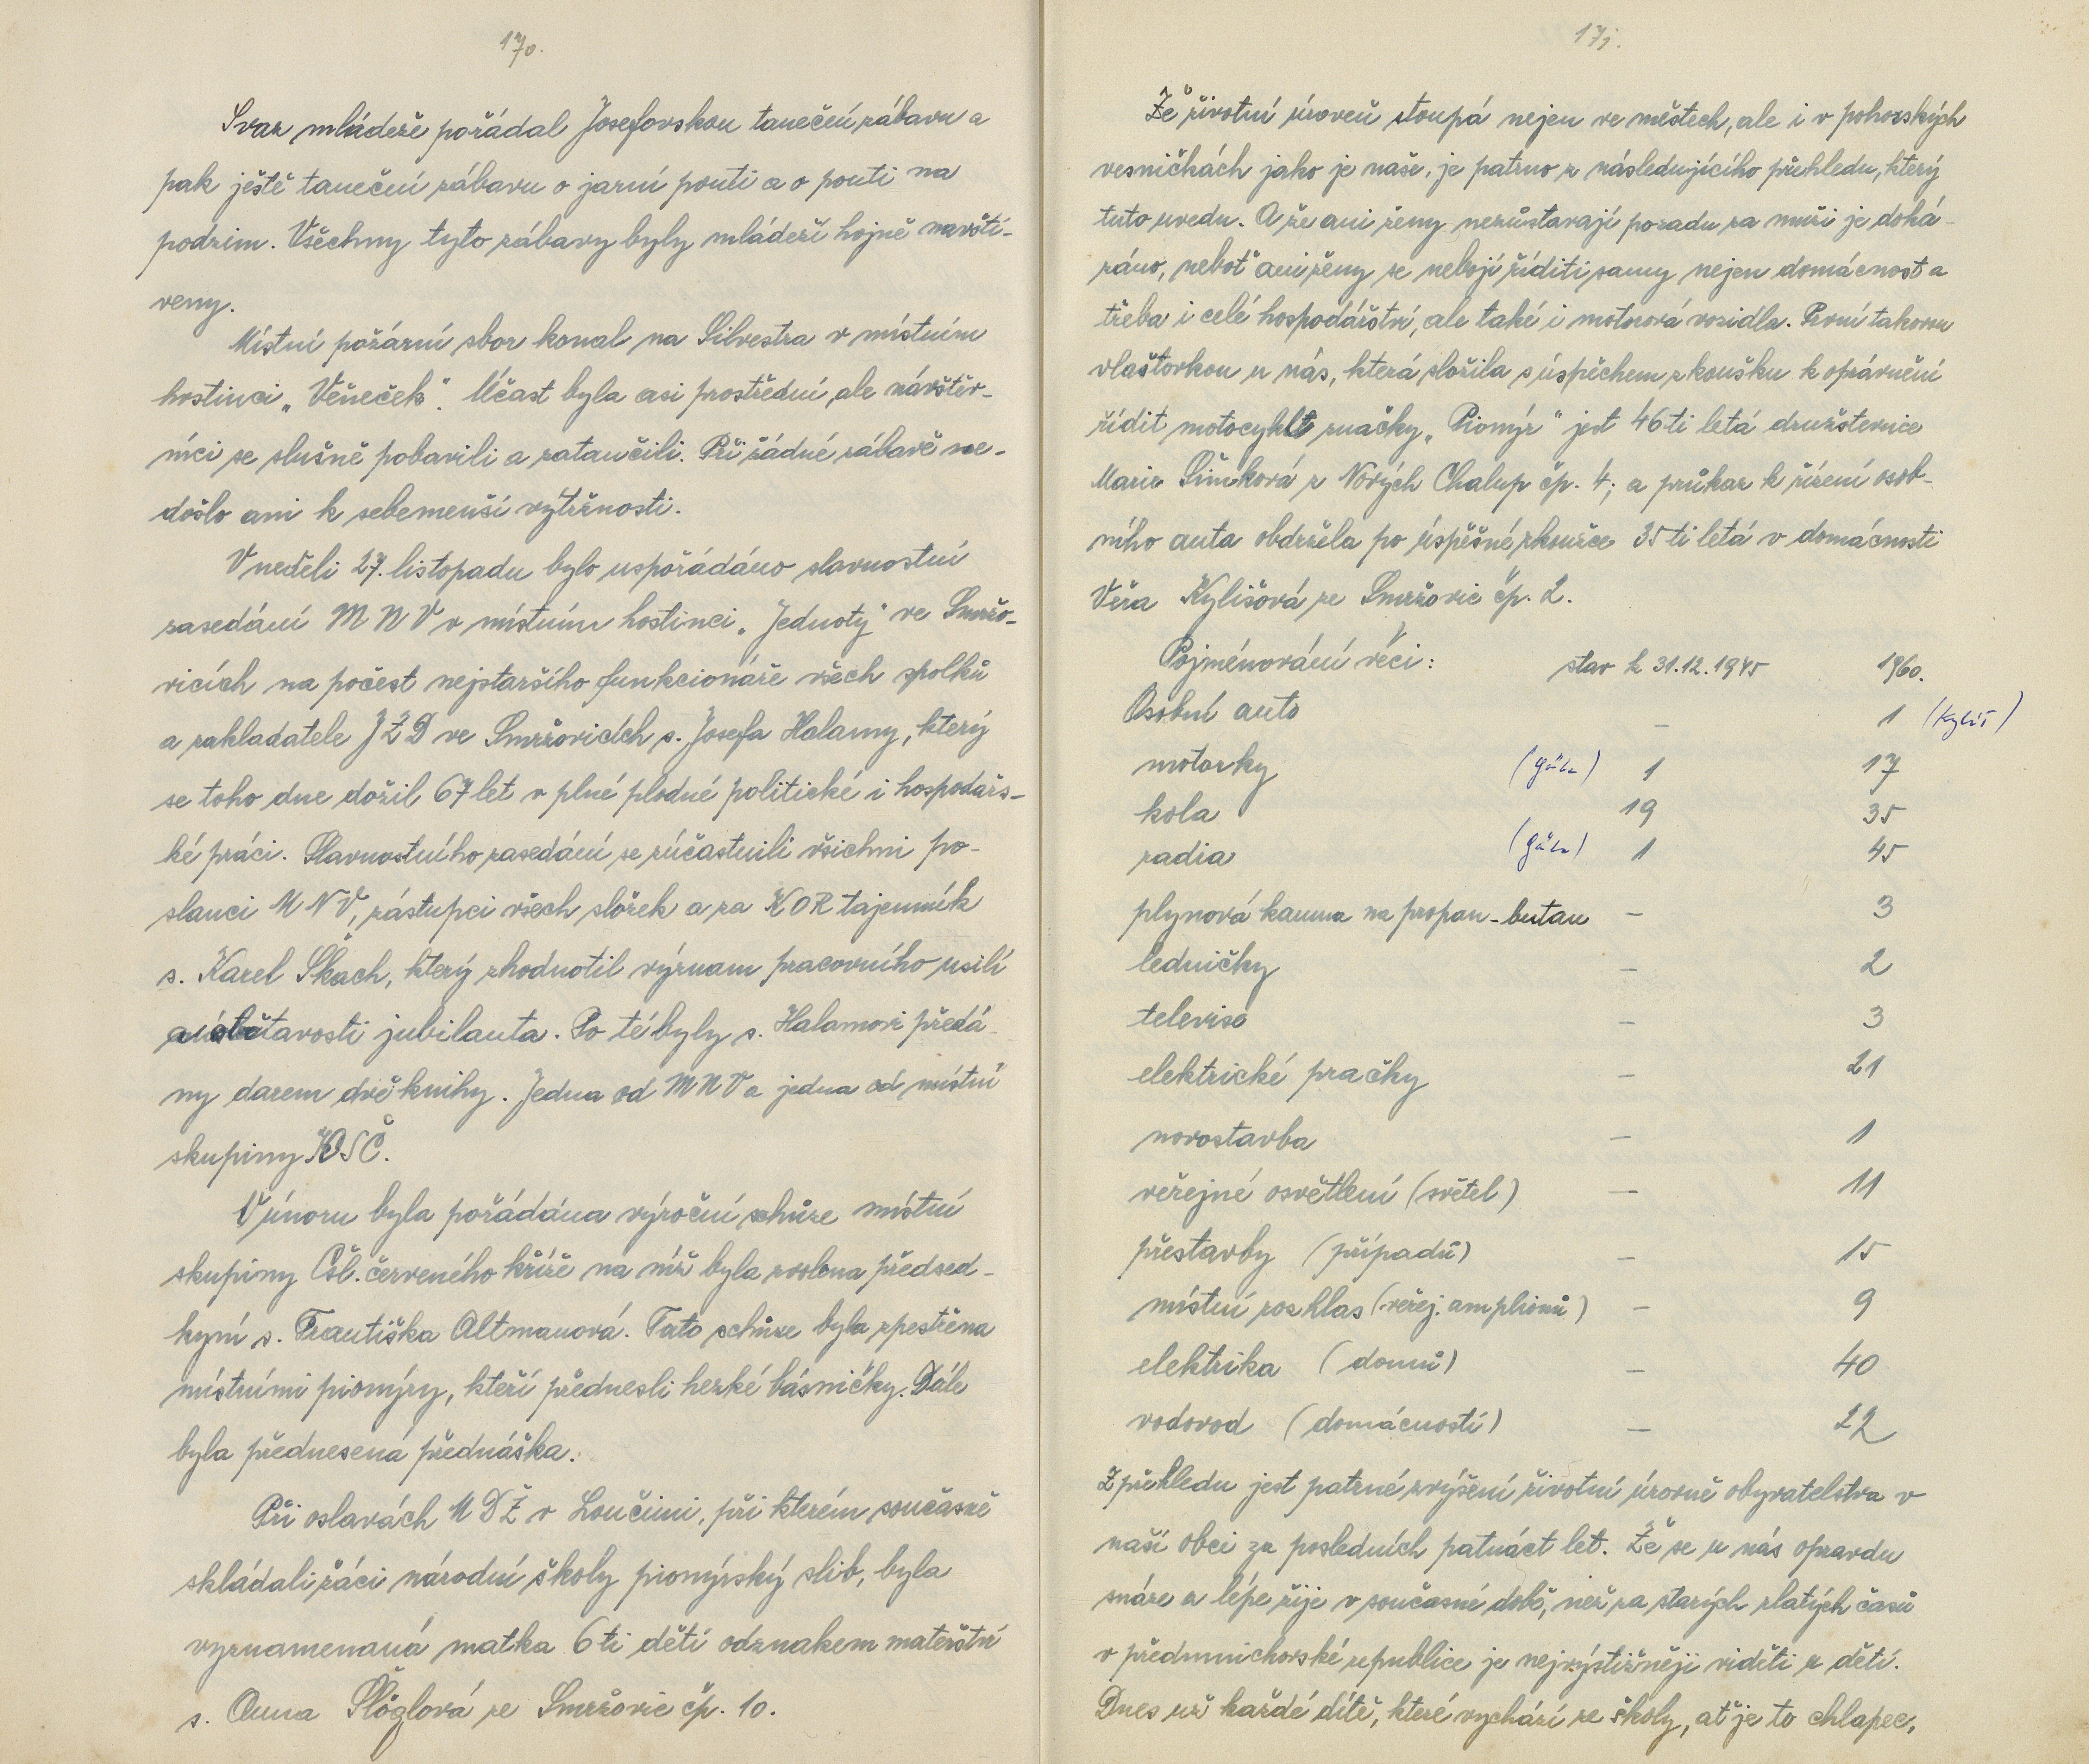 170.
Svaz mládeže pořádal Josefovskou taneční zábavu a
pak ještě taneční zábavu o jarní pouti a o pouti na
podzim. Všechny tyto zábavy byly mládeží hojně navští-
veny.
Místní požární sbor konal na Silvestra v místním
hostinci „Věneček". Účast byla asi prostřední, ale návštěv-
níci se slušně pobavili a zatančili. Při žádné zábavě ne-
došlo ani k sebemenší výtržnosti.
V neděli 27. listopadu bylo uspořádáno slavnostní
zasedání MNV v místním hostinci „Jednoty" ve Smržo-
vicích na počest nejstaršího funkcionáře všech spolků
a zakladatele JZD ve Smržovicích s. Josefa Halamy, který
se toho dne dožil 67 let v plné plodné politické i hospodářs-
ké práci. Slavnostního zasedání se zúčastnili všichni po-
slanci MNV, zástupci všech složek a za KOR tajemník
s. Karel Škach, který zhodnotil význam pracovního usilí
a obětavosti jubilanta. Po té byly s. Halamovi předá-
ny darem dvě knihy. Jedna od MNV a jedna od místní
skupiny KSČ.
V únoru byla pořádána výroční schůze místní
skupiny Čsl. červeného kříže na níž byla zvolena předsed-
kyní s. Františka Altmanová. Tato schůze byla zpestřena
místními pionýry, kteří přednesli hezké básničky. Dále
byla přednesená přednáška.
Při oslavách MDŽ v Loučimi, při kterém současně
skládali žáci národní školy pionýrský slib, byla
vyznamenaná matka 6ti dětí odznakem mateřství
s. Anna Flöglová ze Smržovic čp. 10.
171.
Že životní úroveň stoupá nejen ve městech, ale i v pohorských
vesničkách jako je naše, je patrno z následujícího přehledu, který
tuto uvedu. A že ani ženy nezůstavají pozadu za muži je doká-
záno, neboť ani ženy se nebojí říditi samy nejen domácnost a
třeba i celé hospodářství, ale také i motorová vozidla. První takovou
vlaštovkou u nás, která složila s úspěchem zkoušku k oprávnění
řídit motocykl značky „Pionýr" jest 46ti letá družstevnice
Marie Šimková z Nových Chalup čp. 4; a průkaz k řízení osob-
ního auta obdržela po úspěšné zkoušce 35ti letá v domácnosti
Věra Kylišová ze Smržovic čp. 2.
Pojménování věci: stav k 31.12.1945 1960.
Osobní auto – 1 (Kyliš)
motorky (Gába) 1 17
kola 19 35
radia (Gába) 1 45
plynová kamna na propan-butan – 3
ledničky – 2
televise – 3
elektrické pračky – 21
novostavba – 1
veřejné osvětlení (světel) – 11
přestavby (případů) – 15
místní rozhlas (veřej. amplionů) – 9
elektrika (domů) – 40
vodovod (domácností) – 22
Z přehledu jest patrné zvýšení životní úrovně obyvatelstva v
naší obci za posledních patnáct let. Že se u nás opravdu
snáze a lépe žije v současné době, než za starých zlatých časů
v předmnichovské republice je nejvýstižněji viděti u dětí.
Dnes už každé dítě, které vychází ze školy, ať je to chlapec,